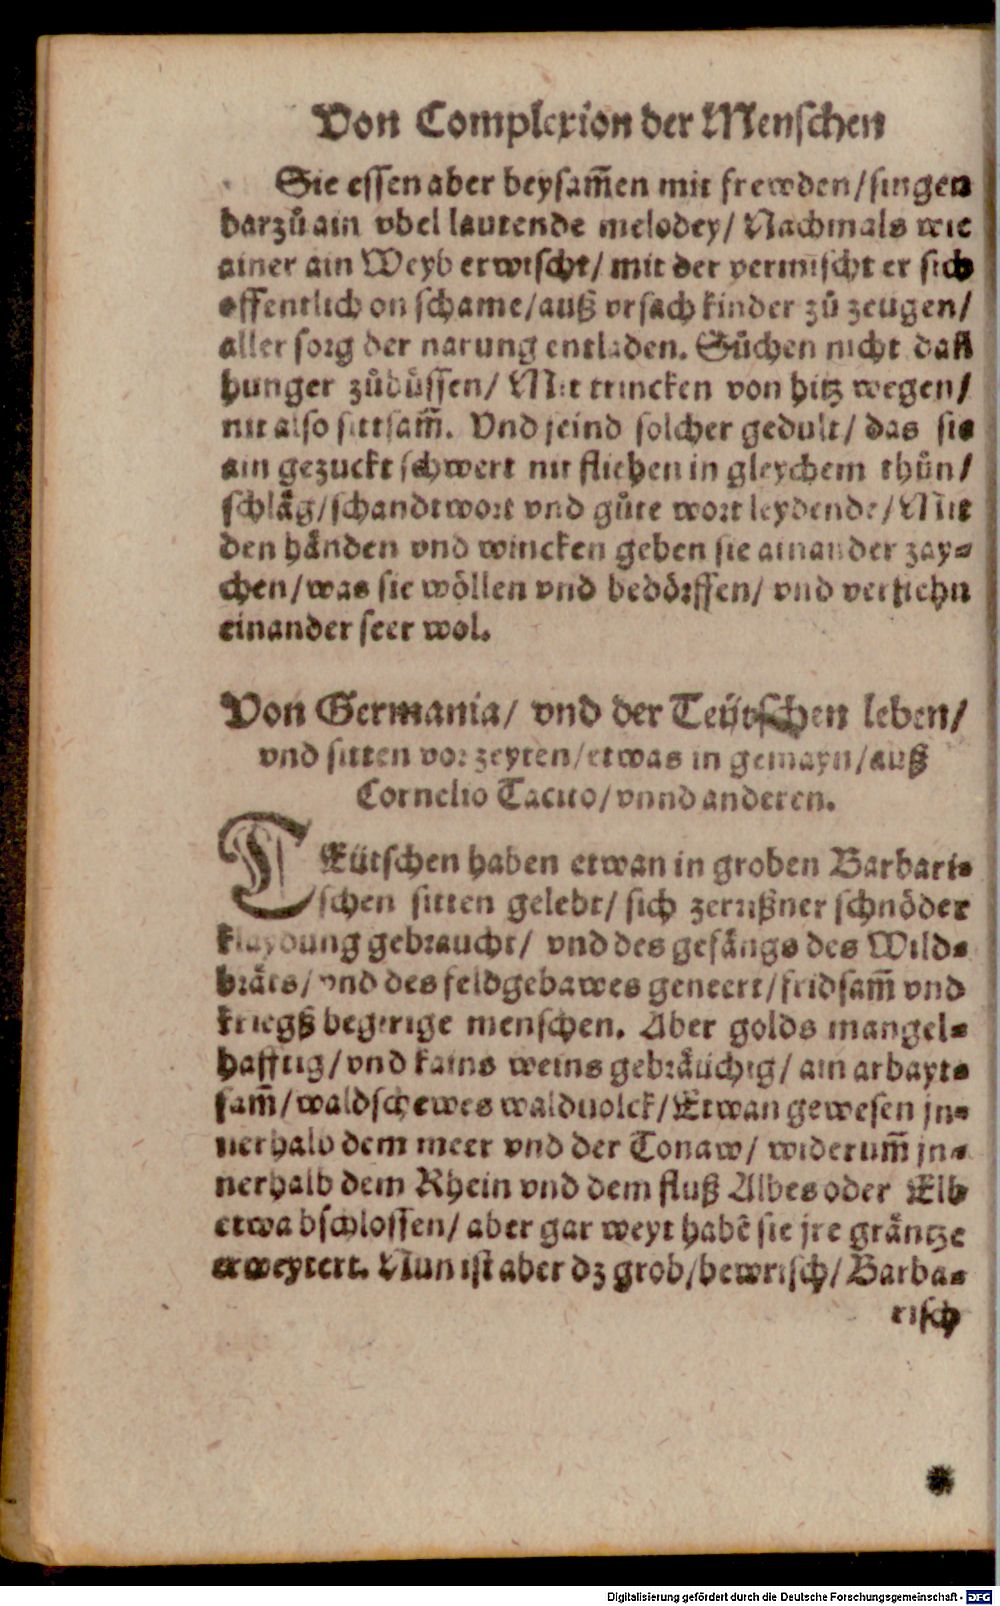 Von Complexion der Menschen
Sie essen aber beysam̃en mit frewden/singen
darzů ain vbel lautende melodey/ Nachmals wie
ainer ain Weyb erwischt/ mit der vermischt er sich
offentlich on schame/auß vrsach kinder zů zeugen/
aller sorg der narung entladen. Sůchen nicht daß
hunger zůbüssen/ Mit trincken von hitz wegen/
nit also sittsam̃. Vnd seind solcher gedult/ das sie
ain gezuckt schwert nit fliehen in gleychem thůn/
schläg/schandtwort vnd gůte wort leydende/ Mit
den händen vnd wincken geben sie ainander zay⸗
chen/was sie wöllen vnd bedörffen/ vnd verstehn
einander seer wol.
Von Germania/ vnd der Teütschen leben/
vnd sitten vor zeyten/etwas in gemayn/auß
Cornelio Tacito/vnnd anderen.
TEütschen haben etwan in groben Barbari⸗
schen sitten gelebt/ sich zerrißner schnöder
klaydung gebraucht/ vnd des gefängs des Wild⸗
bräts/vnd des feldgebawes geneert/fridsam̃ vnd
kriegß begirige menschen. Aber golds mangel⸗
hafftig/vnd kains weins gebräuchig/ ain arbayt⸗
sam̃/waldschewes walduolck/Etwan gewesen jn⸗
nerhalb dem meer vnd der Tonaw/ widerum̃ jn⸗
nerhalb dem Rhein vnd dem fluß Albes oder Elb
etwa bschlossen/ aber gar weyt habẽ sie jre gräntze
erweytert. Nun ist aber dz grob/bewrisch/ Barba⸗
risch
Digitalisierung gefördert durch die Deutsche Forschungsgemeinschaft - DFG